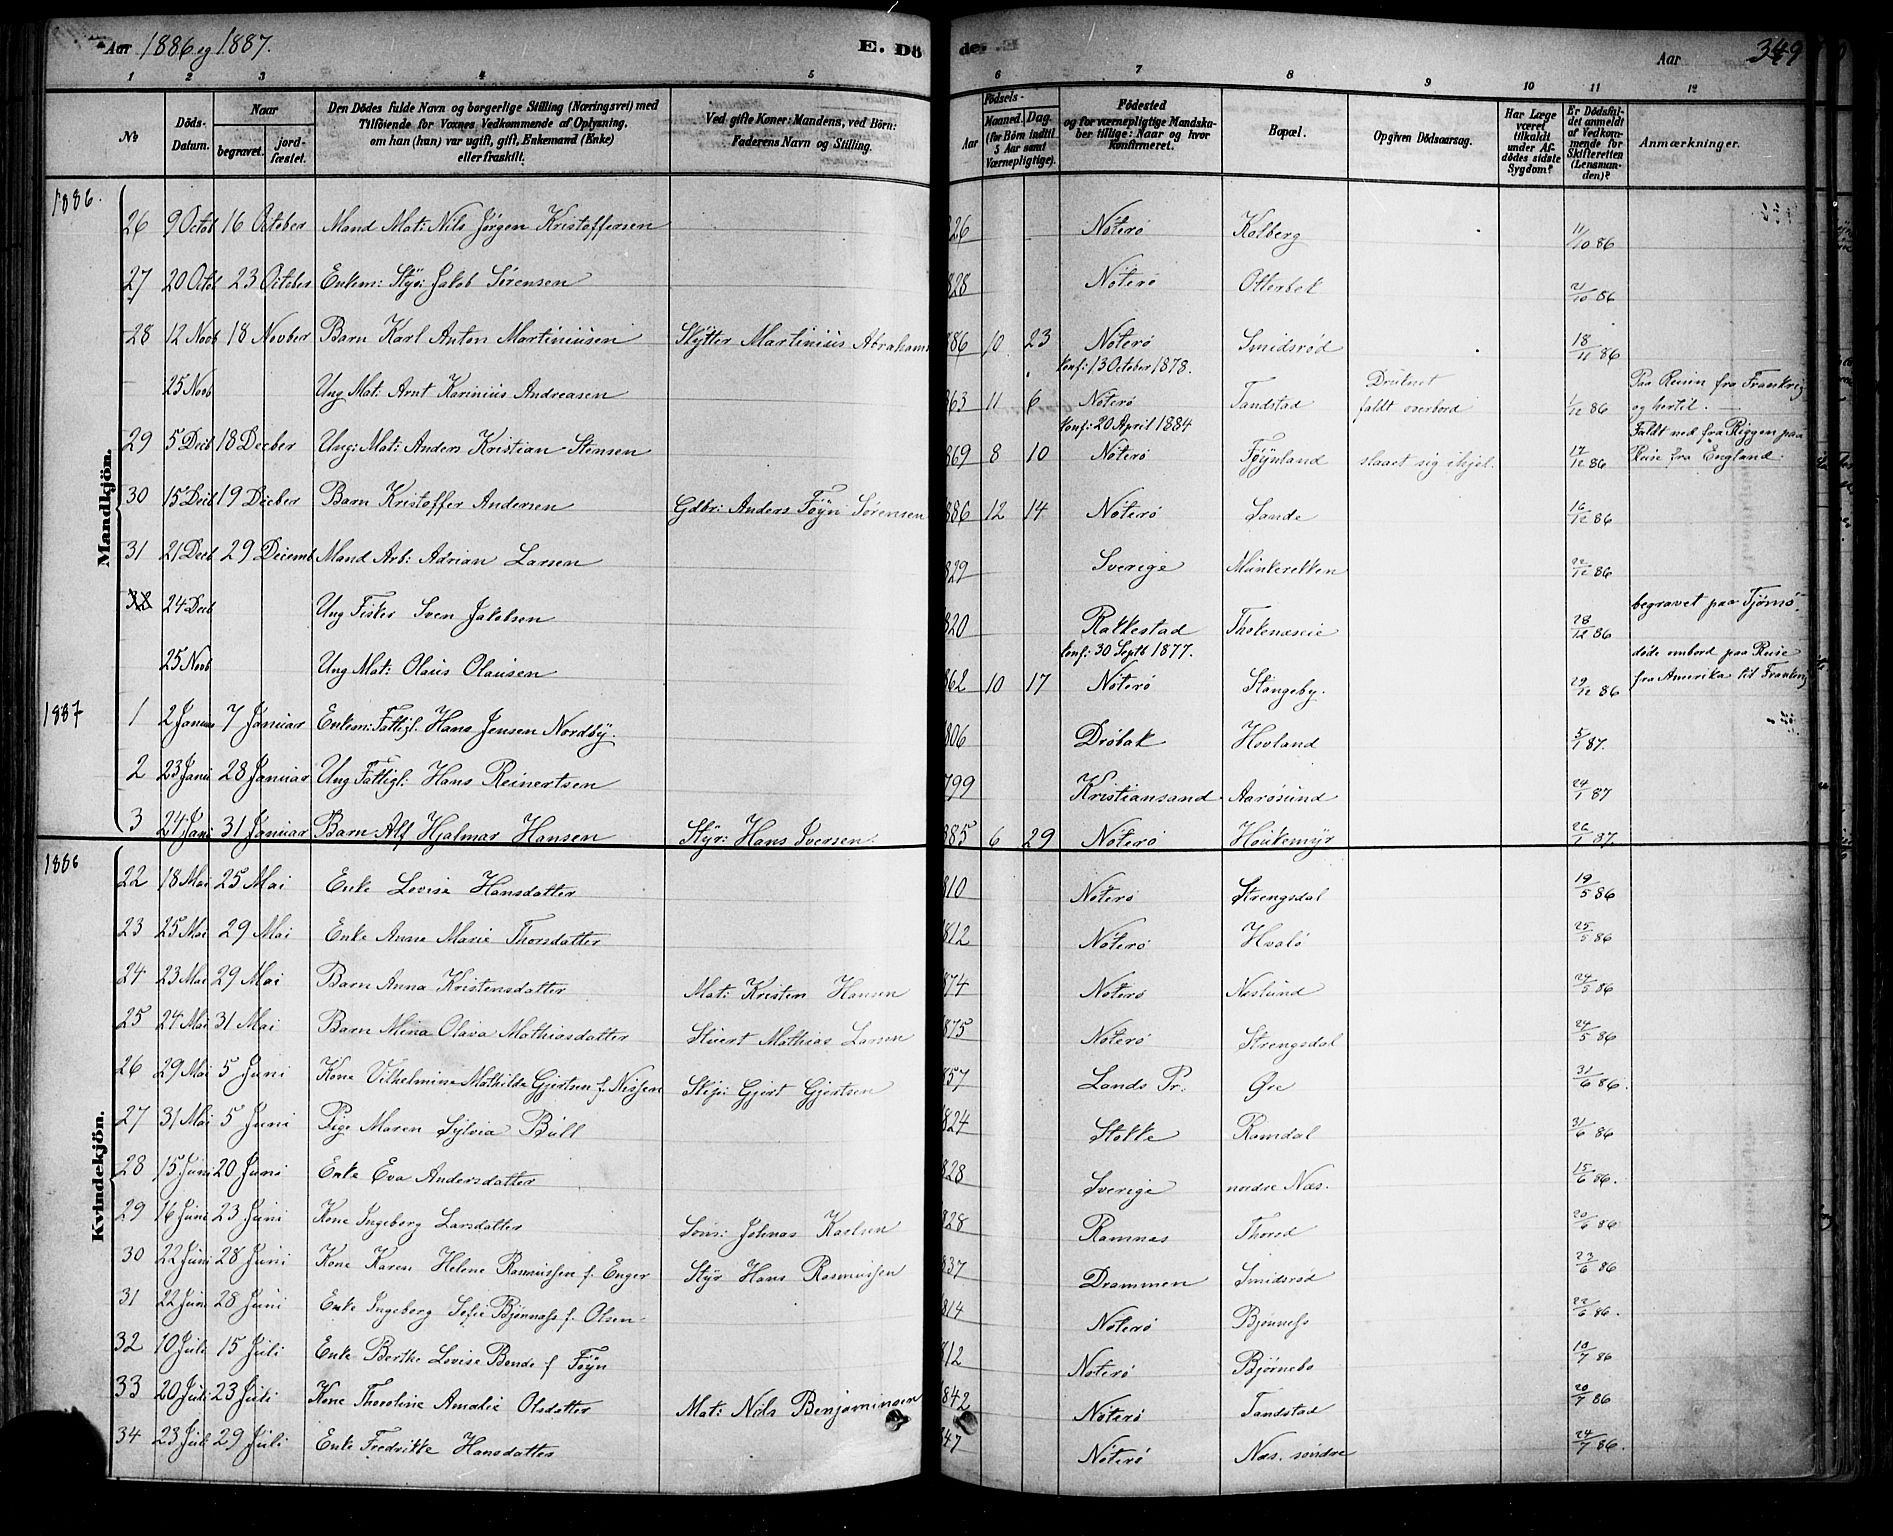 Aar 1886 og 1887.
E. Dö
de.
Aar
349
1 2 3 4 5 6 7 8 9 10 11 12
No
Döds-Datum.
Naar
begravet.
jord-fæstet.
Den Dödes fulde Navn og borgerlige Stilling (Næringsvei) med
Tilföiende for Voxnes Vedkommende af Oplysning,
om han (hun) var ugift, gift, Enkemand (Enke)
eller fraskilt.
Ved gifte Koner: Mandens, ved Börn:
Faderens Navn og Stilling.
Födsels-
Aar
Maaned. Dag.
(for Börn indtil
5 Aar samt
Værnepligtige).
Födested
og for værnepligtige Mandska-
ber tillige: Naar og hvor
Konfirmeret.
Bopæl.
Opgiven Dödsaarsag.
Har Læge
været
tilkaldt
under Af-
dödes sidste
Sygdom?
Er Dödsfal-
det anmeldt
af Vedkom-
mende for
Skifteretten
(Lensman-
den)?
Anmærkninger.
Mandkjön.
1886.
26 9 Octob 16 October Mand Mat: Nils Jørgen Kristoffersen 826 Nøterø Kolberg 11/10 86
27 20 Octob 23 October Enkem: Styr: Jakob Sørensen 828 Nøterø Otterbek 21/10 86
28 12 Novb 18 Novber Barn Karl Anton Martiniusen Skytter Martinius Abrahams 886 10 23 Nøterø Smidsrød 18/11 86
25 Novb Ung Mat: Arnt Karinius Andreasen 863 11 6 Konf: 13 October 1878. Nøterø Tandstad Druknet faldt overbord 1/12 86 Paa Reisen fra Frankrig og hertil.
29 5 Decb 18 Decber Ung: Mat: Anders Kristian Stensen 869 8 10 Konf: 20 April 1884 Nøterø Føynland slaaet sig ihjel. 17/12 86 Faldt ned fra Riggen paa Reise fra England.
30 15 Decb 19 Decber Barn Kristoffer Andersen Gdbr: Anders Føyn Sørensen 886 12 14 Nøterø Sande 16/12 86
31 21 Decb 29 Decemb Mand Arb: Adrian Larsen 829 Sverige Munkerekken 22/12 86
32 24 Decb Ung Fisker Sven Jakobsen 820 Rakkestad 28/12 86 begravet paa Tjømø.
25 Novb Ung Mat: Olaus Olausen 862 10 17 Konf: 30 Septb 1877. Nøterø Stangeby. 29/12 86 døde ombord paa Reise fra Amerika til Frankrig
1887
1 2 Januar 7 Januar Enkem: Fattigl. Hans Jensen Nordby. 806 Drøbak Hovland 5/1 87.
2 23 Janu 28 Januar Ung Fattigl: Hans Reinertsen 799 Kristiansand Aarøsund 24/1 87
3 24 Janu 31 Januar Barn Alf Hjalmar Hansen Styr: Hans Iversen. 885 6 29 Nøterø Houkemyr 26/1 87.
Kvindekjön.
1886
22 18 Mai 25 Mai Enke Lovise Hansdatter 810 Nøterø Strengsdal 19/5 86
23 25 Mai 29 Mai Enke Anne Marie Thorsdatter 812 Nøterø Hvalø 25/5 86
24 23 Mai 29 Mai Barn Anna Kristensdatter Mat: Kristen Hansen 874 Nøterø Neslund 24/5 86
25 24 Mai 31 Mai Barn Mina Olava Mathiasdatter Stuert Mathias Larsen 875 Nøterø Strengsdal 24/5 86
26 29 Mai 5 Juni Kone Vilhelmine Mathilde Gjertsen f. Nissen Skip: Gjert Gjertsen 857 Lands Pr. Øre 31/6 86.
27 31 Mai 5 Juni Pige Maren Sylvia Bull 824 Stokke Ramdal 31/6 86
28 15 Juni 20 Juni Enke Eva Andersdatter 828 Sverige nordre Næs. 15/6 86.
29 16 Juni 23 Juni Kone Ingeborg Larsdatter Tøm: Johnas Karlsen 828 Ramnæs Thorød 20/6 86
30 22 Juni 28 Juni Kone Karen Helene Rasmussen f. Enger Styr Hans Rasmussen 837 Drammen Smidsrød 23/6 86
31 22 Juni 28 Juni Enke Ingeborg Sofie Bjønness f. Olsen 814 Nøterø Bjønness 22/6 86.
32 10 Juli 15 Juli Enke Berthe Lovise Bende f Føyn 812 Nøterø Bjørnebo 10/7 86
33 20 Juli 23 Juli Kone Thoroline Amalie Olsdatter Mat: Nils Benjaminsen 842 Nøterø Tandstad 20/7 86
34 23 Juli 29 Juli Enke Fredrikke Hansdatter 47 Nøterø Næs. søndre 24/7 86.